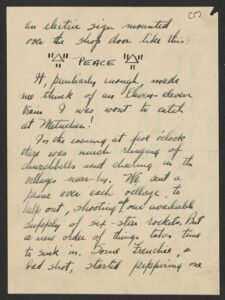 (5)
an electric sign mounted
over the shop door like this:
" " PEACE " "
It, peculiarly enough made
me think of an eleven-eleven
train I was wont to catch
at Metuchen!
In the evening at five o'clock
there was much ringing of
churchbells and chiming in the
villages near-by. We sent a
plane over each village to
help out, shooting our available
supply of six-star rockets. But
a new order of things takes time
to sink in. Some Frenchie, a
bad shot, started peppering one